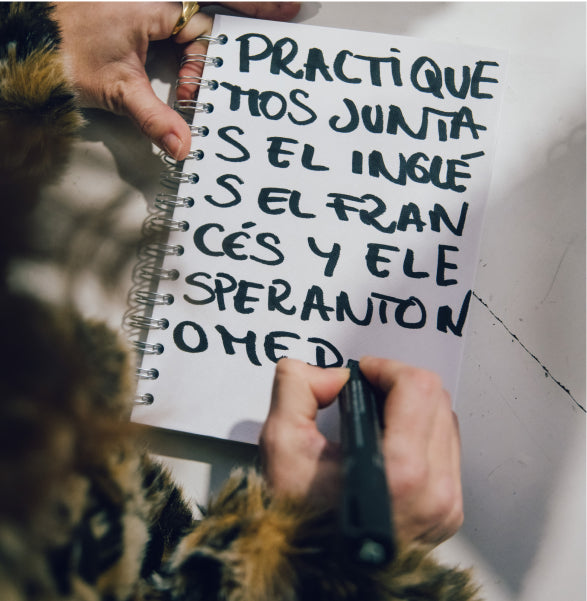 PRACTIQUE
MOS JUNTA
S EL INGLÉ
S EL FRAN
CÉS Y EL E
SPERANTO N
O ME D